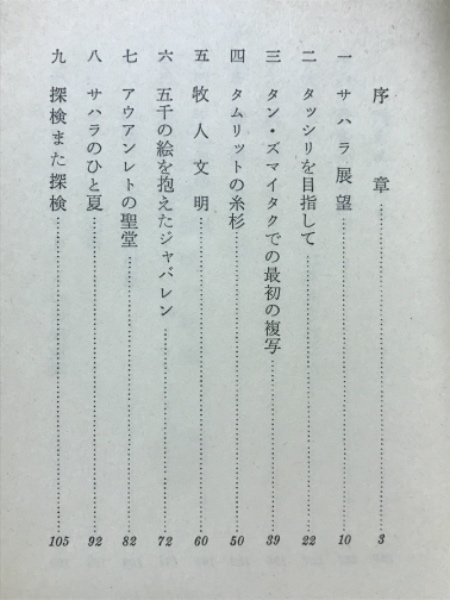 序章 3
一 サハラ展望 10
二 タッシリを目指して 22
三 タン・ズマイタクでの最初の複写 39
四 タムリットの糸杉 50
五 牧人文明 60
六 五千の絵を抱えたジャバレン 72
七 アウアンレトの聖堂 82
八 サハラのひと夏 92
九 探検また探検 105